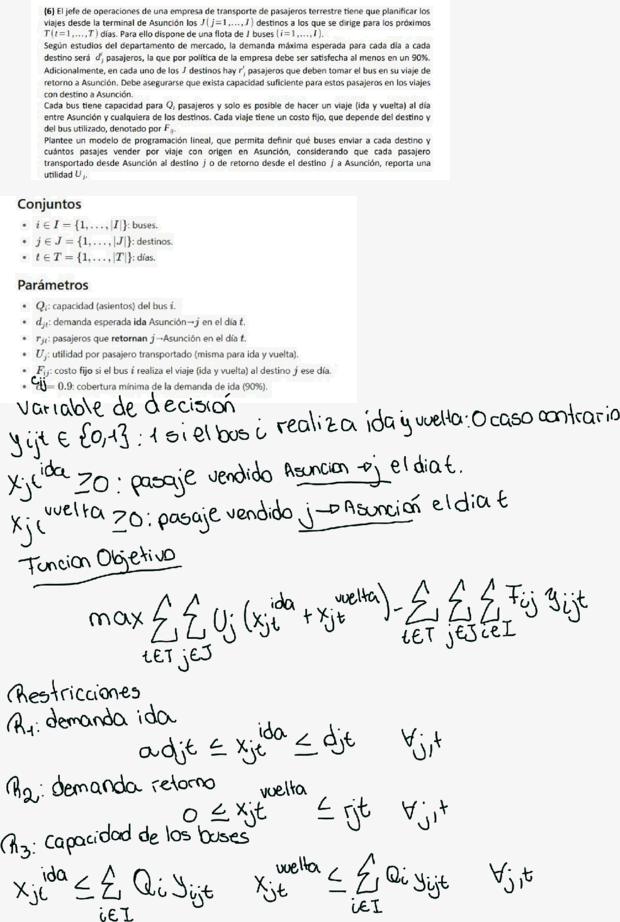 (6) El jefe de operaciones de una empresa de transporte de pasajeros terrestre tiene que planificar los
viajes desde la terminal de Asunción los J (j=1,...,J) destinos a los que se dirige para los próximos
T (t=1,...,T) días. Para ello dispone de una flota de I buses (i=1,...,I).
Según estudios del departamento de mercado, la demanda máxima esperada para cada día a cada
destino será d_j^t pasajeros, la que por política de la empresa debe ser satisfecha al menos en un 90%.
Adicionalmente, en cada uno de los J destinos hay r_j^t pasajeros que deben tomar el bus en su viaje de
retorno a Asunción. Debe asegurarse que exista capacidad suficiente para estos pasajeros en los viajes
con destino a Asunción.
Cada bus tiene capacidad para Q_i pasajeros y solo es posible de hacer un viaje (ida y vuelta) al día
entre Asunción y cualquiera de los destinos. Cada viaje tiene un costo fijo, que depende del destino y
del bus utilizado, denotado por F_ij.
Plantee un modelo de programación lineal, que permita definir qué buses enviar a cada destino y
cuántos pasajes vender por viaje con origen en Asunción, considerando que cada pasajero
transportado desde Asunción al destino j o de retorno desde el destino j a Asunción, reporta una
utilidad U_j.
Conjuntos
• i ∈ I = {1, . . . , |I|}: buses.
• j ∈ J = {1, . . . , |J|}: destinos.
• t ∈ T = {1, . . . , |T|}: días.
Parámetros
• Q_i: capacidad (asientos) del bus i.
• d_jt: demanda esperada ida Asunción→j en el día t.
• r_jt: pasajeros que retornan j→Asunción en el día t.
• U_j: utilidad por pasajero transportado (misma para ida y vuelta).
• F_ij: costo fijo si el bus i realiza el viaje (ida y vuelta) al destino j ese día.
• Cij = 0.9: cobertura mínima de la demanda de ida (90%).
Variable de decisión
yijt ∈ {0,1} : 1 si el bus i realiza ida y vuelta: 0 caso contrario
Xjt^ida ≥0 : pasaje vendido Asuncion → j el dia t.
Xjt^vuelta ≥0: pasaje vendido j → Asunción el dia t
Funcion Objetivo
max ∑_{t∈T} ∑_{j∈J} Uj (xjt^ida + xjt^vuelta) - ∑_{t∈T} ∑_{j∈J} ∑_{i∈I} Fij yijt
Restricciones
R1: demanda ida
adjt ≤ xjt^ida ≤ djt ∀j,t
R2: demanda retorno
0 ≤ xjt^vuelta ≤ rjt ∀j,t
R3: Capacidad de los buses
xjt^ida ≤ ∑_{i∈I} Qi yijt xjt^vuelta ≤ ∑_{i∈I} Qi yijt ∀j,t